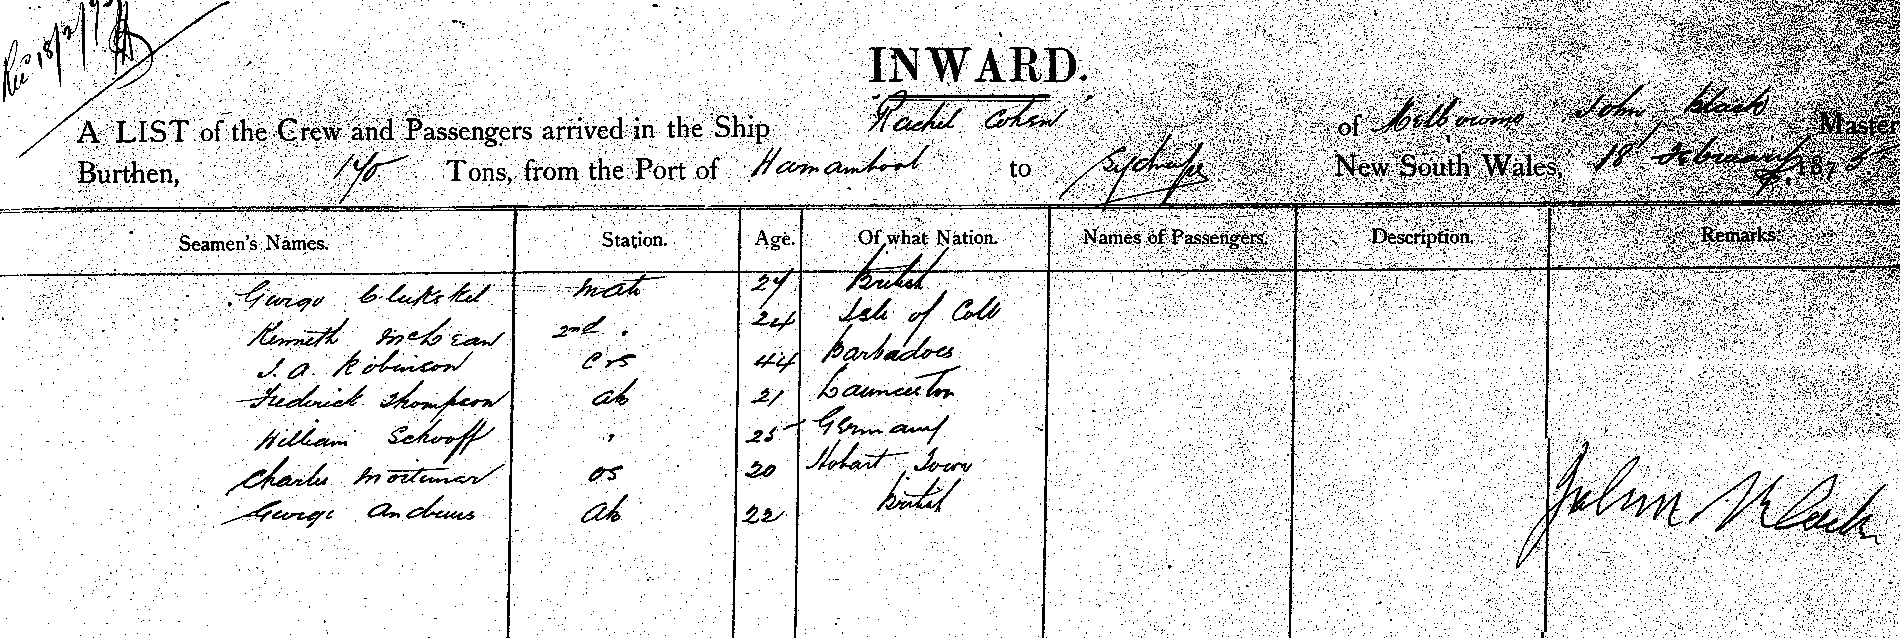 18/2/75
INWARD.
A LIST of the Crew and Passengers arrived in the Ship Rachel Cohen of Melbourne John Black Master
Burthen, Tons, from the Port of to New South Wales, 18 February 1875
Seamen's Names. Station. Age. Of what Nation. Names of Passengers. Description. Remarks
George mate British
Kenneth McLean 2nd 24 Isle of Coll
J. A. Robinson 44 Barbadoes
Frederick Thompson ab 21 Launceston
William Schooff " 25 Germany
Charles Mortimer os 20 Hobart Town
George Andrews Ab 22 British
John Black